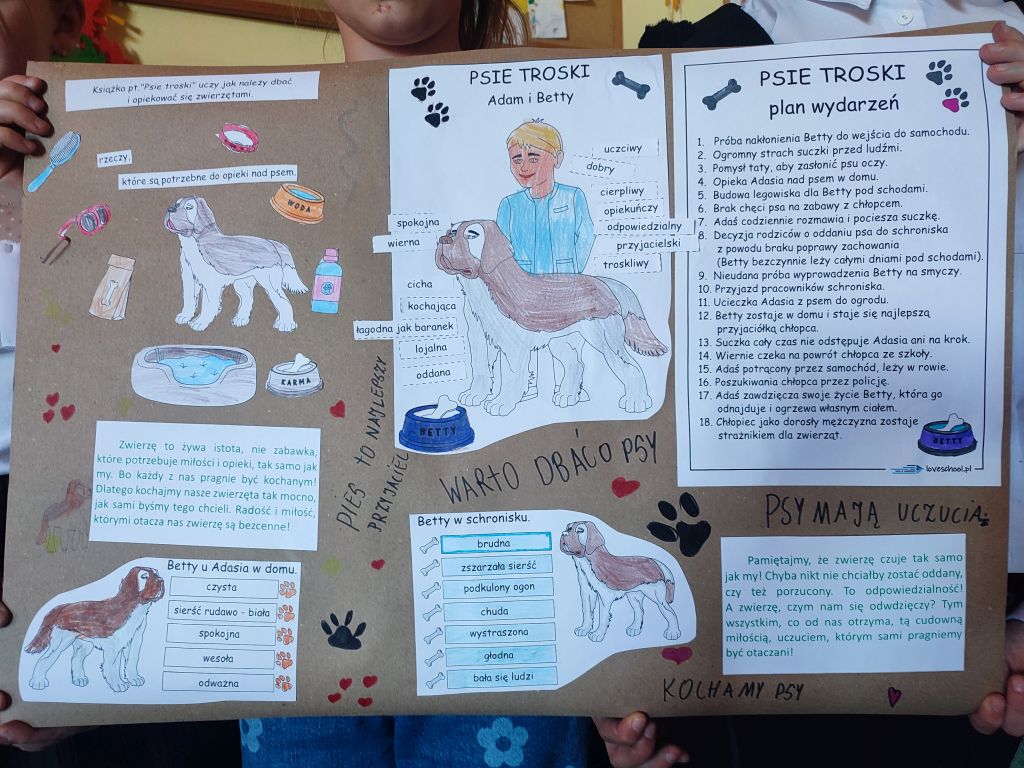 Książka pt."Psie troski" uczy jak należy dbać
i opiekować się zwierzętami.
rzeczy,
które są potrzebne do opieki nad psem.
WODA
KARMA
Zwierzę to żywa istota, nie zabawka,
które potrzebuje miłości i opieki, tak samo jak
my. Bo każdy z nas pragnie być kochanym!
Dlatego kochajmy nasze zwierzęta tak mocno,
jak sami byśmy tego chcieli. Radość i miłość,
którymi otacza nas zwierzę są bezcenne!
Betty u Adasia w domu.
czysta
sierść rudawo - biała
spokojna
wesoła
odważna
PIES TO NAJLEPSZY
PRZYJACIEL
PSIE TROSKI
Adam i Betty
uczciwy
dobry
cierpliwy
opiekuńczy
odpowiedzialny
przyjacielski
troskliwy
spokojna
wierna
cicha
kochająca
łagodna jak baranek
lojalna
oddana
BETTY
WARTO DBAĆ O PSY
Betty w schronisku.
brudna
zszarzała sierść
podkulony ogon
chuda
wystraszona
głodna
bała się ludzi
PSIE TROSKI
plan wydarzeń
1. Próba nakłonienia Betty do wejścia do samochodu.
2. Ogromny strach suczki przed ludźmi.
3. Pomysł taty, aby zasłonić psu oczy.
4. Opieka Adasia nad psem w domu.
5. Budowa legowiska dla Betty pod schodami.
6. Brak chęci psa na zabawy z chłopcem.
7. Adaś codziennie rozmawia i pociesza suczkę.
8. Decyzja rodziców o oddaniu psa do schroniska
z powodu braku poprawy zachowania
(Betty bezczynnie leży całymi dniami pod schodami).
9. Nieudana próba wyprowadzenia Betty na smyczy.
10. Przyjazd pracowników schroniska.
11. Ucieczka Adasia z psem do ogrodu.
12. Betty zostaje w domu i staje się najlepszą
przyjaciółką chłopca.
13. Suczka cały czas nie odstępuje Adasia ani na krok.
14. Wiernie czeka na powrót chłopca ze szkoły.
15. Adaś potrącony przez samochód, leży w rowie.
16. Poszukiwania chłopca przez policję.
17. Adaś zawdzięcza swoje życie Betty, która go
odnajduje i ogrzewa własnym ciałem.
18. Chłopiec jako dorosły mężczyzna zostaje
strażnikiem dla zwierząt.
BETTY
loveschool.pl
PSY MAJĄ UCZUCIA
Pamiętajmy, że zwierzę czuje tak samo
jak my! Chyba nikt nie chciałby zostać oddany,
czy też porzucony. To odpowiedzialność!
A zwierzę, czym nam się odwdzięczy? Tym
wszystkim, co od nas otrzyma, tą cudowną
miłością, uczuciem, którym sami pragniemy
być otaczani!
KOCHAMY PSY